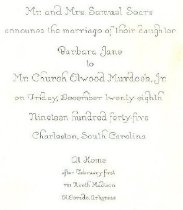 Mr. and Mrs. Samuel Sacrs
announce the marriage of their daughter
Barbara Jane
to
Mr. Church Elwood Murdock, Jr.
on Friday, December twenty-eighth
Nineteen hundred forty-five
Charleston, South Carolina
At Home
after February first
North Madison
El Dorado, Arkansas